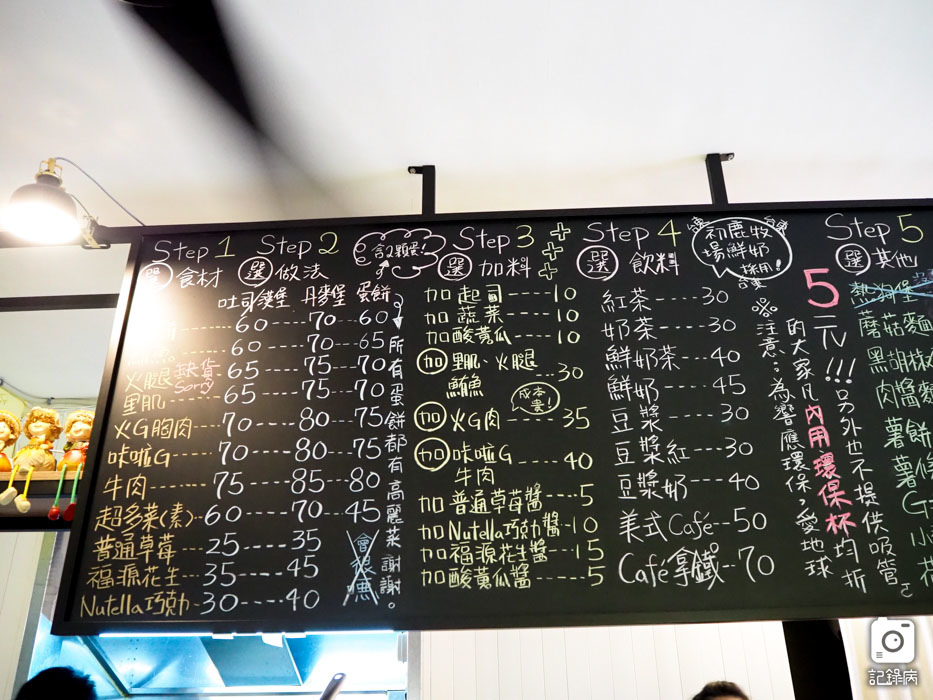 Step 1
選 食材
Step 2
選 做法
含2顆蛋!
吐司 漢堡 丹麥堡 蛋餅
60----70---60
60----70---65
火腿 缺貨 Sorry 65----75---70
里肌 65----75---70
火G胸肉--70----80---75
咔啦G---70----80---75
牛肉----75----85---80
超多菜(素)--60----70---45
普通草莓---25----35
福源花生---35----45
Nutella巧克力--30----40
會很噁
所有蛋餅都有高麗菜謝謝。
Step 3
選 加料
加起司----10
加蔬菜----10
加酸黃瓜---10
加 里肌、火腿
鮪魚 ---30
成本貴!
加 火G肉----35
加 咔啦G
牛肉 ----40
加普通草莓醬---5
加Nutella巧克力醬--10
加福源花生醬---15
加酸黃瓜醬---5
Step 4
選 飲料
初鹿牧場鮮奶
採用!
紅茶----30
奶茶----30
鮮奶茶---40
鮮奶----45
豆漿----30
豆漿紅---30
豆漿奶---40
美式Café--50
Café拿鐵--70
注意:為響應環保,愛地球
的大家凡內用環保杯均折
5元!!!另外也不提供吸管
Step 5
選 其他
熱狗堡
蘑菇麵
黑胡椒
肉醬麵
薯餅
薯條
G
小
記錄病